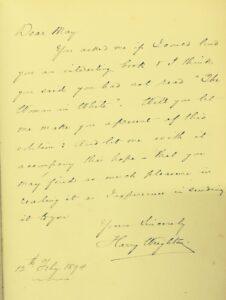 Dear May
You asked me if I could lend
you an interesting book & I think
you said you had not read "The
Woman in White". Will you let
me make you a present of this
edition? And let me with it
accompany this hope - that you
may find as much pleasure in
reading it as I experience in sending
it to you
Yours Sincerely
Harry
12th Feby 1894